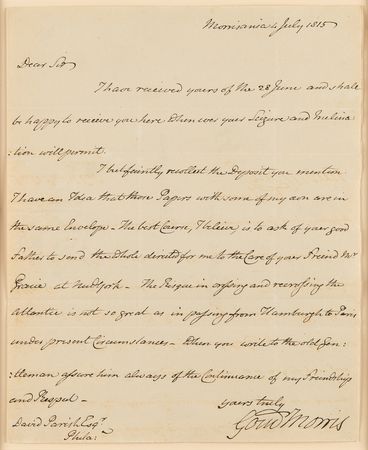 Morrisania 4 July 1815
Dear Sir
I have received yours of the 28 June and shall
be happy to receive you here when ever your Leizure and Inclina
:tion will permit.
I sufficiently recollect the Deposit you mention
I have an Idea that those Papers with some of my own are in
the same Envelope – The best Course, I believe, is to ask of your good
Father to send the Whole directed for me to the Care of your Friend Mr
Gracie at NewYork – The Risque in crossing and recrossing the
Atlantic is not so great as in passing from Hamburgh to Paris
under present Circumstances – When you write to the old Gen:
:tleman assure him always of the Continuance of my Friendship
and Respect –
yours truly
Gouv Morris
David Parish Esqr
Phila: